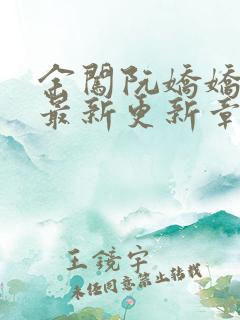 金闔阮嬌嬌
最新更新章
王鏡宇
未经同意禁止转载